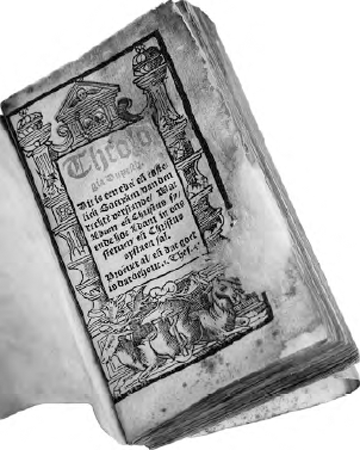 Theolo
gia Dupeste.
Dit is een edel eñ coste
lick Sacraem van den
rechte verstande/ Wat
Adam eñ Christus sy/
ende hoe Adam in ons
sterven eñ Christus
opstaen sal.
Proeuet al/ eñ dat goet
is dat behout. Thes.